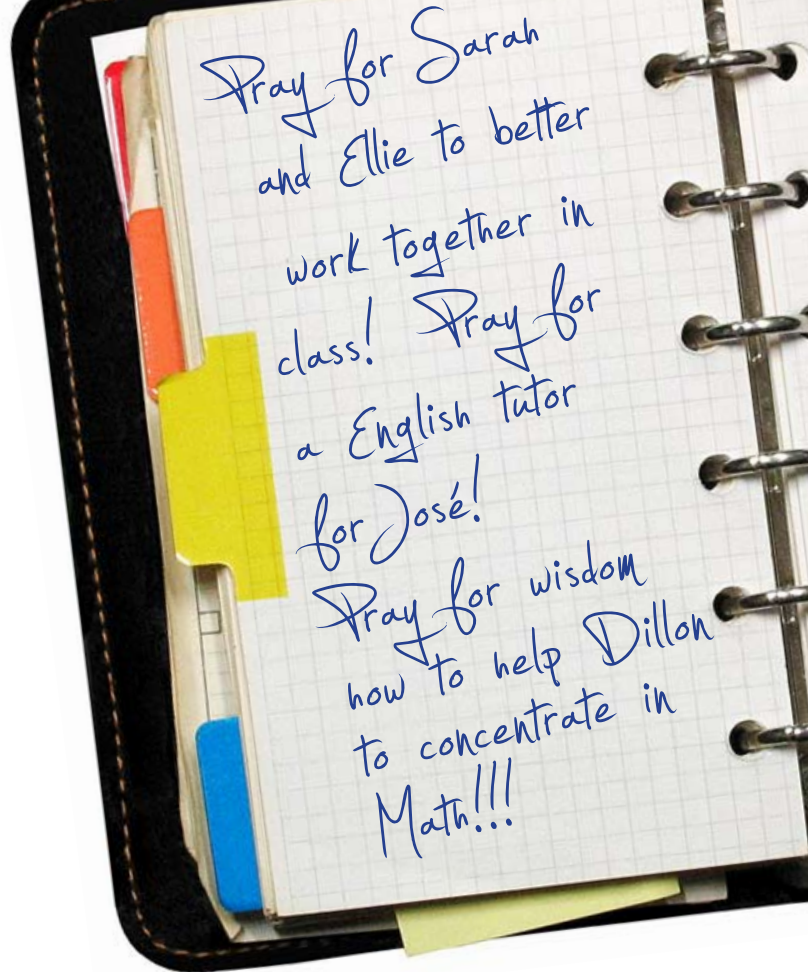 Pray for Sarah
and Ellie to better
work together in
class! Pray for
a English tutor
for José!
Pray for wisdom
how to help Dillon
to concentrate in
Math!!!